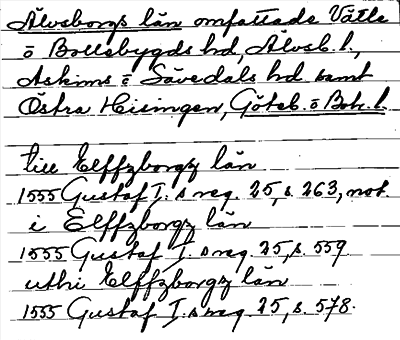 Älvsborgs län omfattade Vätle
o Bollebygds hd, Älvsb. l.,
Askims o Sävedals hd samt
Östra Hisingen, Göteb. o Boh. l.
till Elffzborgz län
1555 Gustaf I:s reg. 25, s. 263, not.
i Elffzborgz län
1555 Gustaf I:s reg. 25, s. 559
uthi Elffzborgz län
1555 Gustaf I:s reg. 25, s. 578.